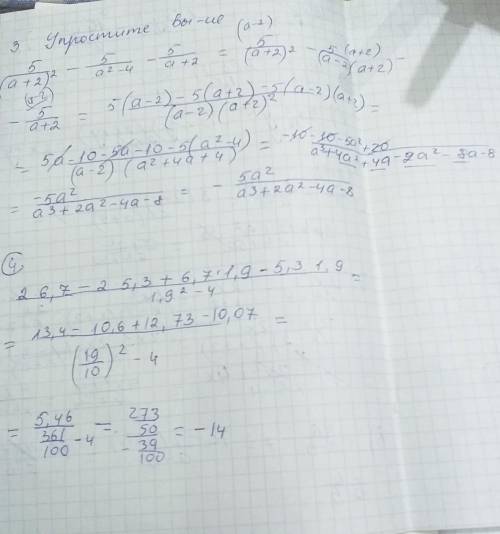 3 Упростите вы-ие (a-2)
5/(a+2)² - 5/(a²-4) - 5/(a+2) = 5/(a+2)² - 5(a+2)/(a-2)(a+2) -
(a-2)
- 5/(a+2) = (5(a-2) - 5(a+2) - 5(a-2)(a+2))/((a-2)(a+2)²) =
= (5a-10-5a-10-5(a²-4))/((a-2)(a²+4a+4)) = (-10-10-5a²+20)/(a³+4a²+4a-2a²-8a-8)
= -5a²/(a3+2a²-4a-8) = - 5a²/(a3+2a²-4a-8)
4
(2 6,7 - 2 5,3 + 6,7·1,9 - 5,3 1,9)/(1,9²-4) =
= (13,4 - 10,6 + 12,73 - 10,07)/((19/10)² - 4) =
= 5,46/(361/100 - 4) = (273/50)/(-39/100) = -14